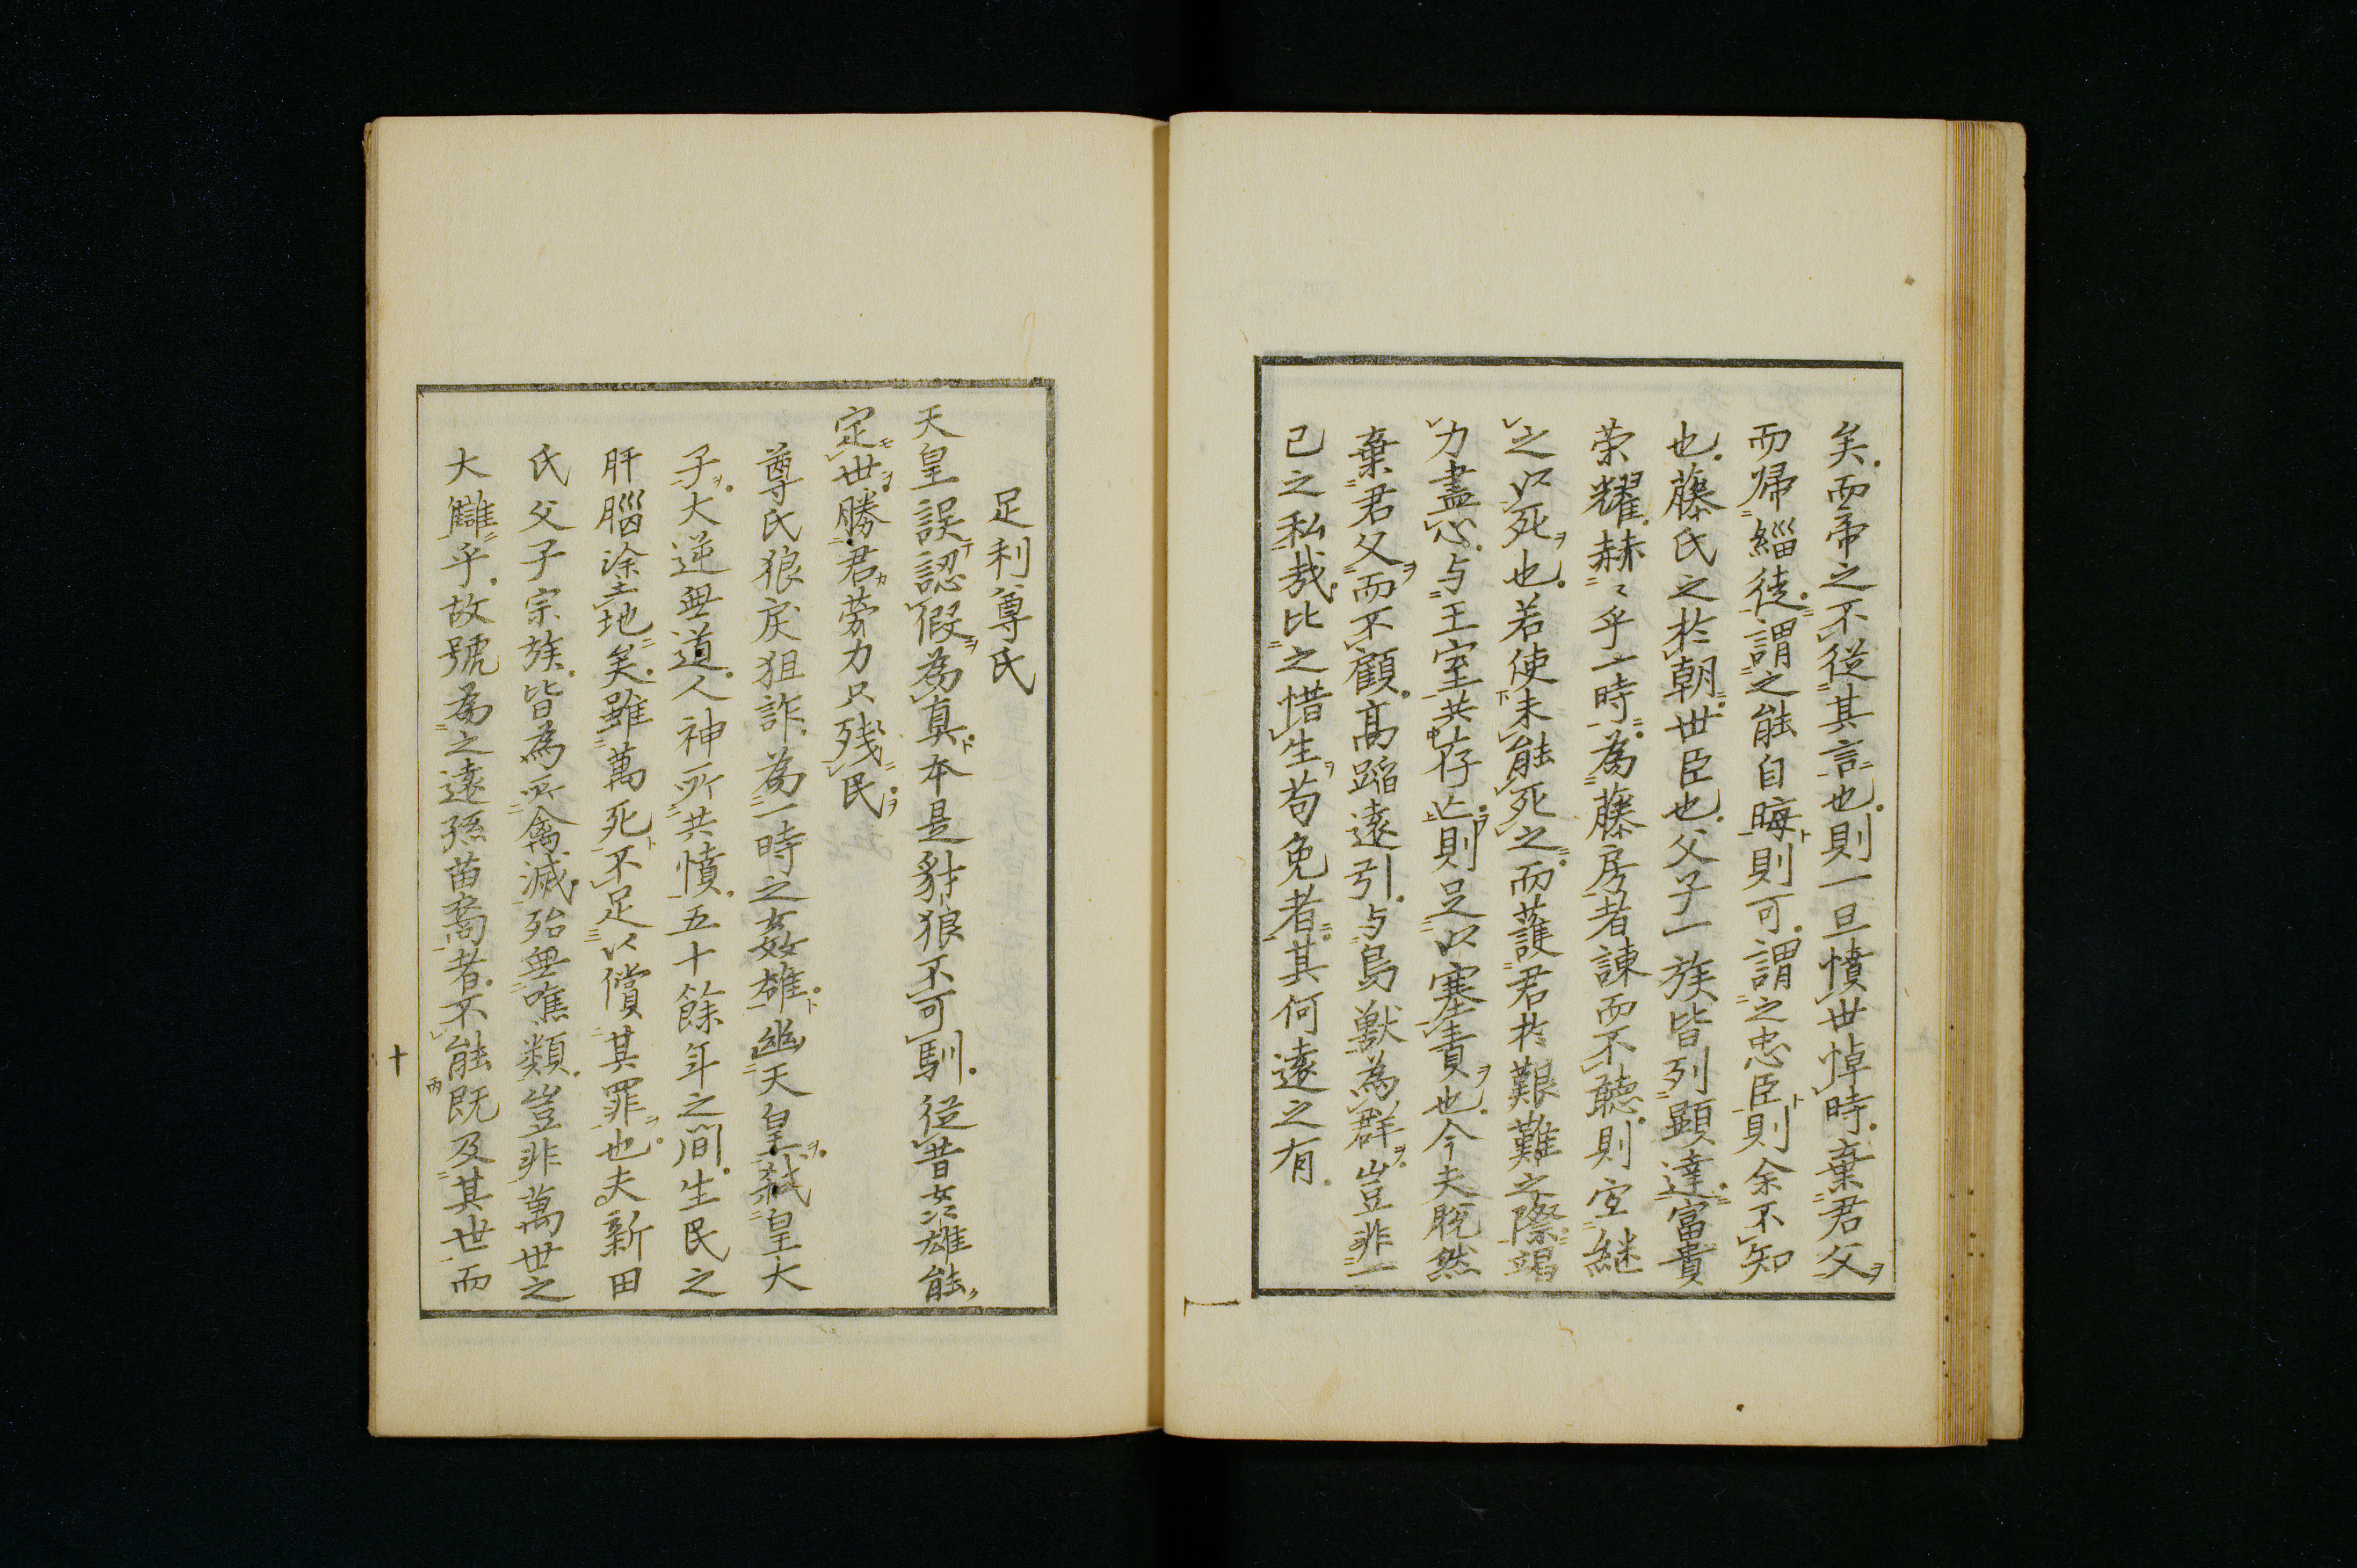 矣而帝之不從其言也則一旦憤世悼時棄君父
而帰緇徒謂之能自晦則可謂之忠臣則余不知
也藤氏之於朝世臣也父子一族皆列顕達富貴
荣耀赫〻乎一時為藤房者諌而不聴則宜継
之以死也若使未能死之而護君於艱難之際竭
力盡心与王室共存亡則足以塞責也今夫脱然
棄君父而不顧高蹈遠引与鳥獣為群豈非一
己之私哉比之惜生苟免者其何遠之有
足利尊氏
天皇誤認假為真本是豺狼不可馴従昔姦雄能
定世勝君労力只残民
尊氏狼戻狙詐為一時之姦雄幽天皇弑皇太
子大逆無道人神所共憤五十餘年之間生民之
肝脳塗地矣雖萬死不足以償其罪也夫新田
氏父子宗族皆為所禽滅殆無噍類豈非萬世之
大讎乎故號為之遠孫苗裔者不能既及其世而
十